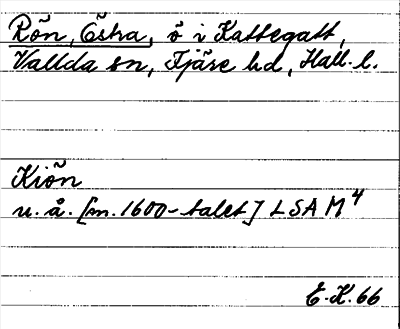 Rön, Östra, ö i Kattegatt,
Vallda sn, Fjäre hd, Hall. l.
Kiön
u. å. [m. 1600-talet] LSA M 4
E.K. 66